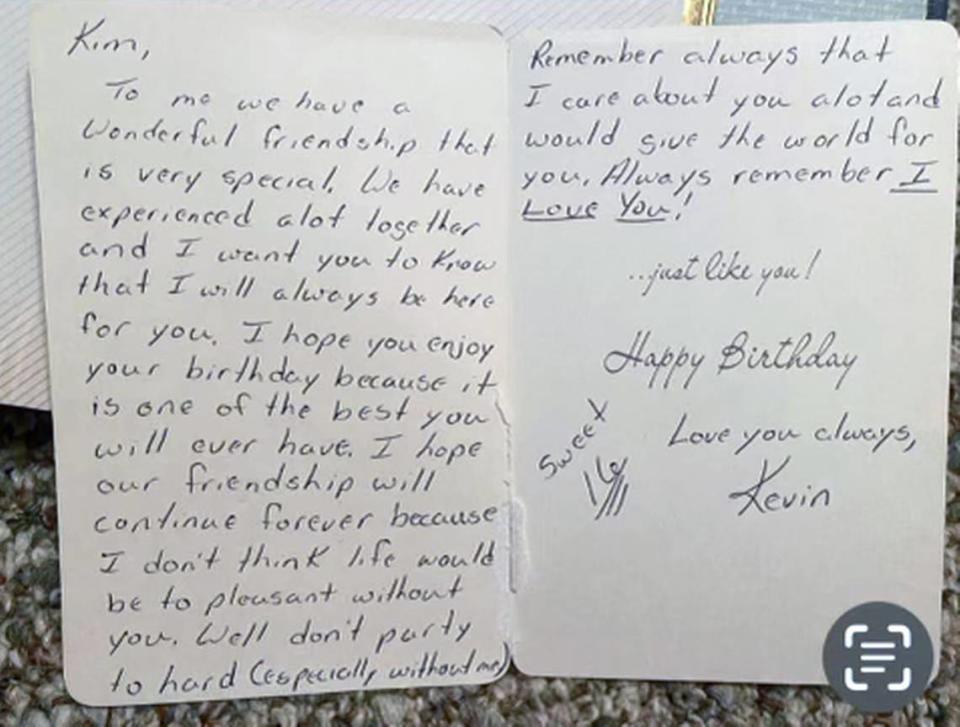 Kim,
To me we have a
Wonderful friendship that
is very special. We have
experienced alot together
and I want you to know
that I will always be here
for you. I hope you enjoy
your birthday because it
is one of the best you
will ever have. I hope
our friendship will
continue forever because
I don't think life would
be to pleasant without
you. Well don't party
to hard (especially without me)
Remember always that
I care about you alot and
would give the world for
you. Always remember I
Love You!
..just like you!
Happy Birthday
Sweet
16!!
Love you always,
Kevin